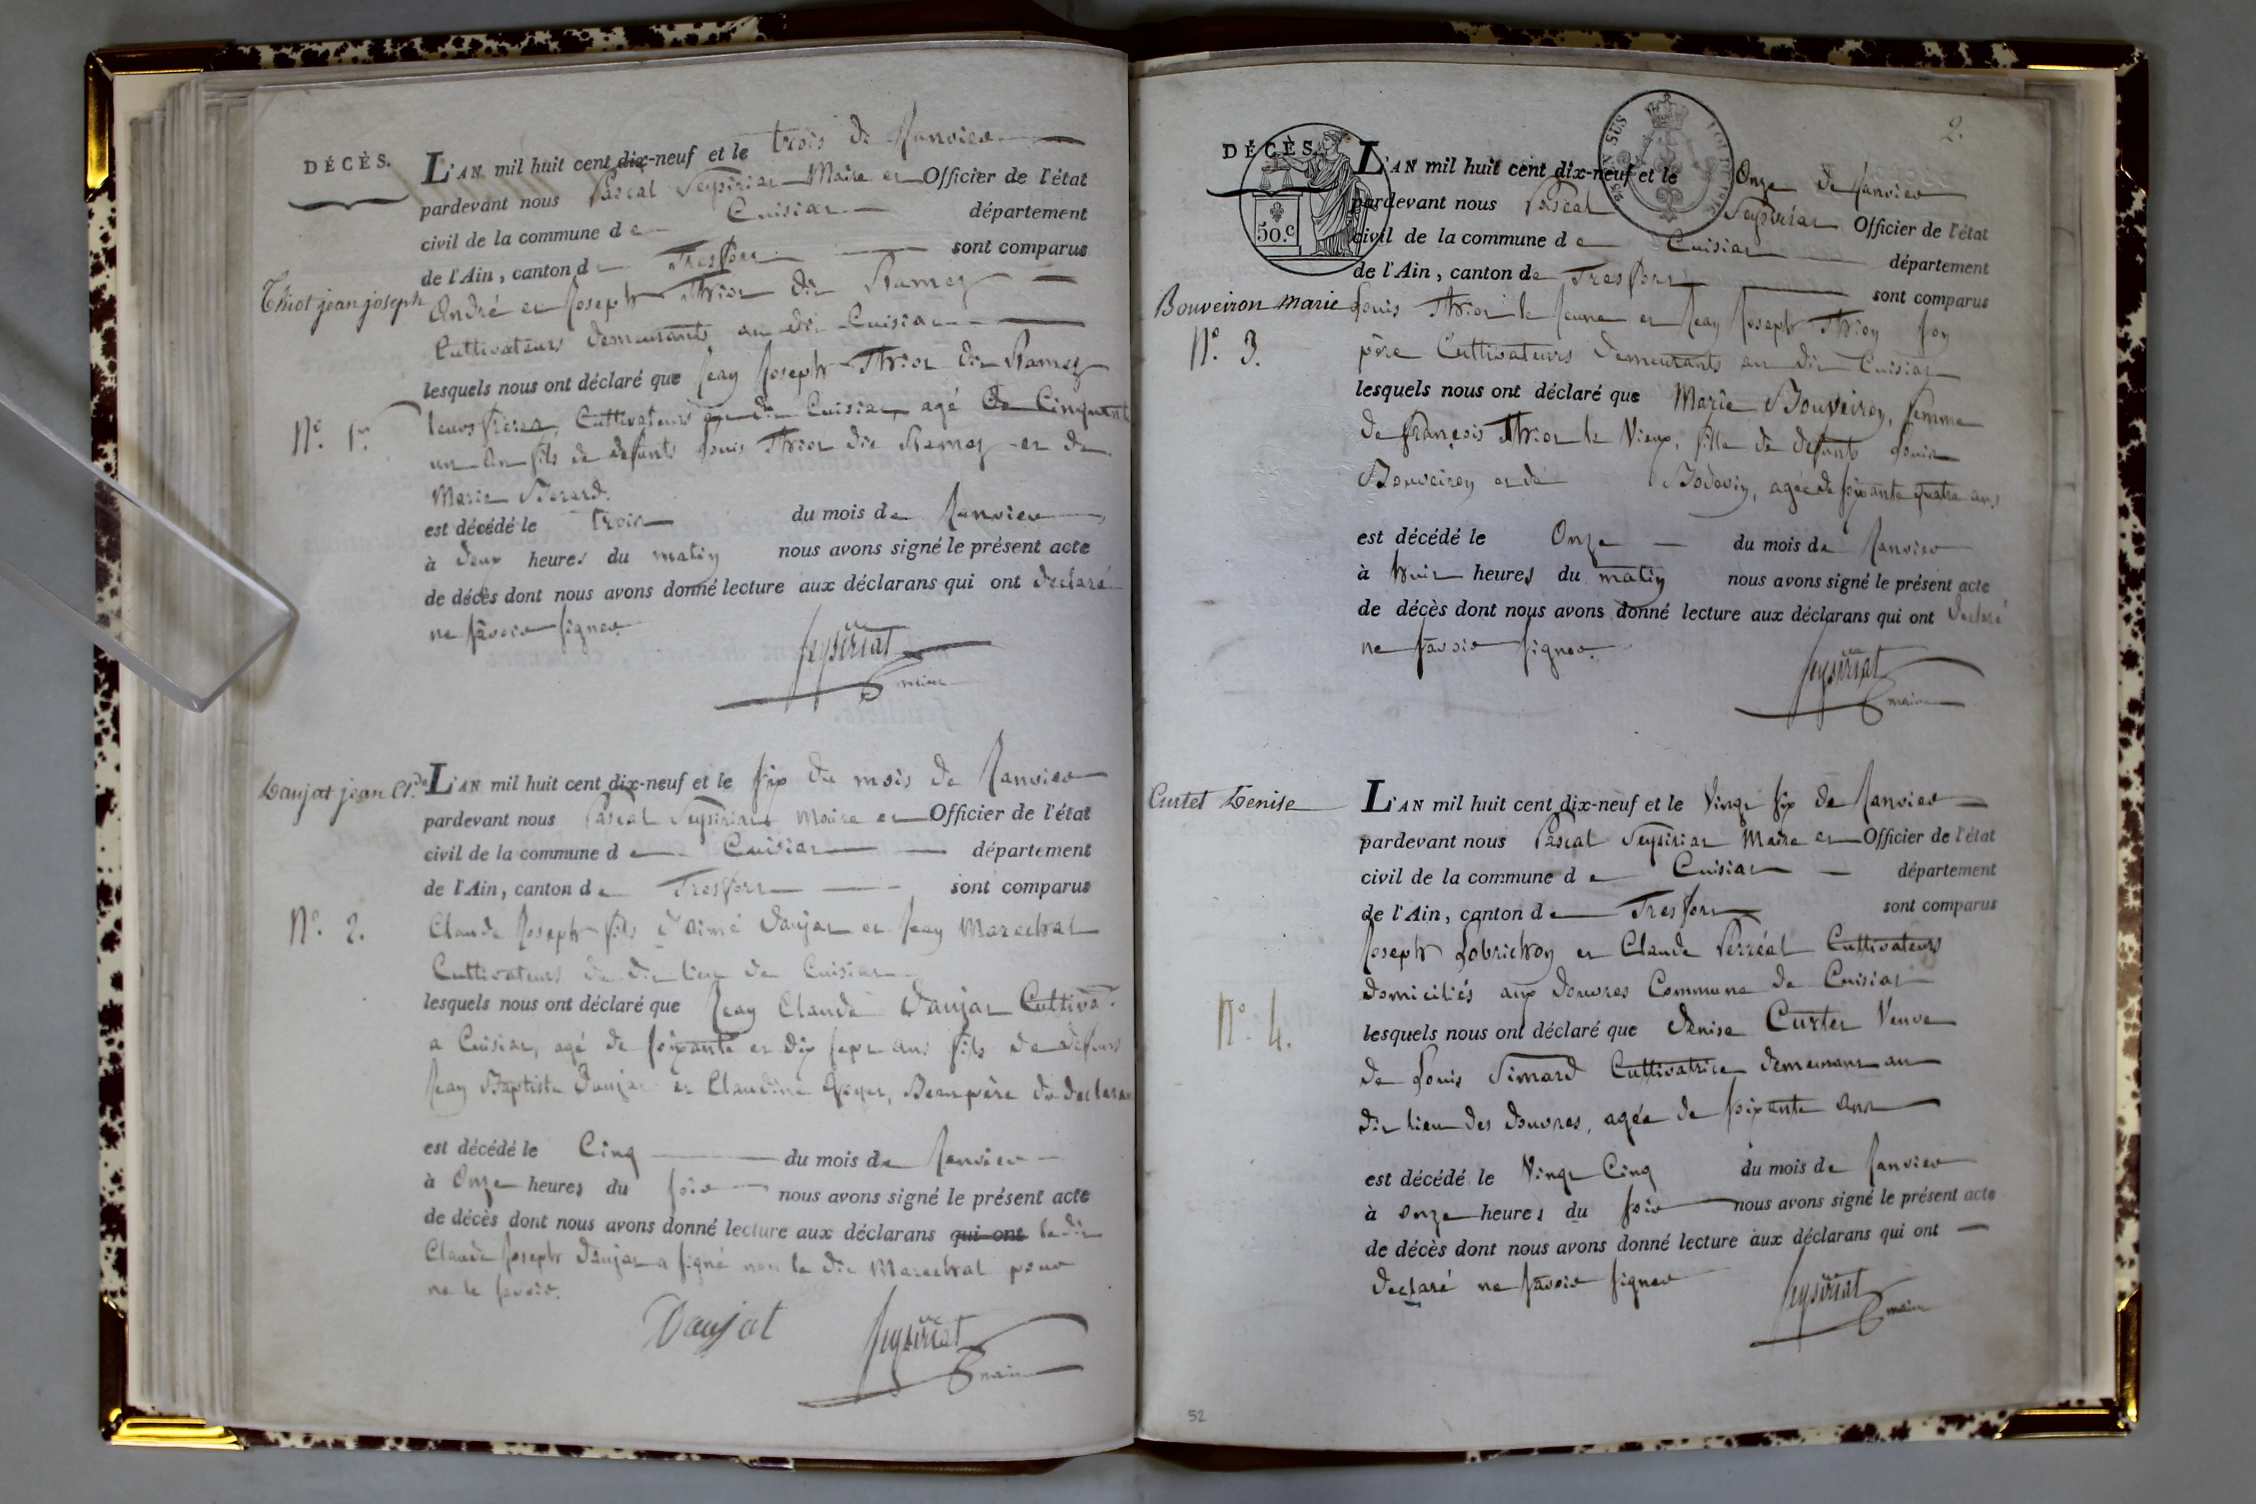 DÉCÈS.
L'AN mil huit cent dix-neuf et le trois de Janvier
pardevant nous Pascal Seysiriat Maire et Officier de l'état
civil de la commune de Cuisiat département
de l'Ain, canton de Treffort sont comparus
Thiot jean joseph
André et Joseph Thiot dit Ramez
Cultivateurs demeurants au dit Cuisiat
lesquels nous ont déclaré que Jean Joseph Thiot dit Ramez
N.° 1.er
leurs frères, Cultivateurs au dit Cuisiat, agé de Cinquante
un an fils de defunts Louis Thiot dit Ramez et de
Marie Berard.
est décédé le trois du mois de Janvier
à deux heures du matin nous avons signé le présent acte
de décès dont nous avons donné lecture aux déclarans qui ont declaré
ne savoir signer.
Seysiriat
maire
Daujat jean Cl.de
L'AN mil huit cent dix-neuf et le six du mois de Janvier
pardevant nous Pascal Seysiriat Maire et Officier de l'état
civil de la commune de Cuisiat département
de l'Ain, canton de Treffort sont comparus
N.° 2.
Claude Joseph fils d'aimé Daujat et Jean Marechal
Cultivateurs du dit lieu de Cuisiat
lesquels nous ont déclaré que Jean Claude Daujat Cultivat.
a Cuisiat, agé de soixante et dix sept ans fils de defunts
Jean Baptiste Daujat et Claudine, Beaupère du declarant
est décédé le Cinq du mois de Janvier
à Onze heures du soir nous avons signé le présent acte
de décès dont nous avons donné lecture aux déclarans qui ont le dit
Claude Joseph Daujat a signé non le dit Marechal pour
ne le savoir.
Daujat
Seysiriat
maire
2.
DÉCÈS.
50.c
L'AN mil huit cent dix-neuf et le Onze de Janvier
pardevant nous Pascal Seysiriat Officier de l'état
civil de la commune de Cuisiat département
de l'Ain, canton de Treffort sont comparus
Bouveiron marie
Louis Thiot le Jeune et Jean Joseph Thiot son
N.° 3.
père Cultivateurs demeurants au dit Cuisiat
lesquels nous ont déclaré que Marie Bouveiron, femme
de françois Thiot le Vieux, fille de defunts Louis
Bouveiron et de Bodovin, agée de soixante quatre ans
est décédé le Onze du mois de Janvier
à huit heures du matin nous avons signé le présent acte
de décès dont nous avons donné lecture aux déclarans qui ont declaré
ne savoir signer.
Seysiriat
maire
Curtet Denise
L'AN mil huit cent dix-neuf et le Vingt six de Janvier
pardevant nous Pascal Seysiriat Maire et Officier de l'état
civil de la commune de Cuisiat département
de l'Ain, canton de Treffort sont comparus
Joseph Lobrichon et Claude Perréal Cultivateurs
domiciliés aux Douvres Commune de Cuisiat
N.° 4.
lesquels nous ont déclaré que Denise Curtet Veuve
de Louis Simard Cultivatrice demeurant au
dit lieu des Douvres, agée de soixante ans
est décédé le Vingt Cinq du mois de Janvier
à onze heures du soir nous avons signé le présent acte
de décès dont nous avons donné lecture aux déclarans qui ont
declaré ne savoir signer
Seysiriat
maire
52